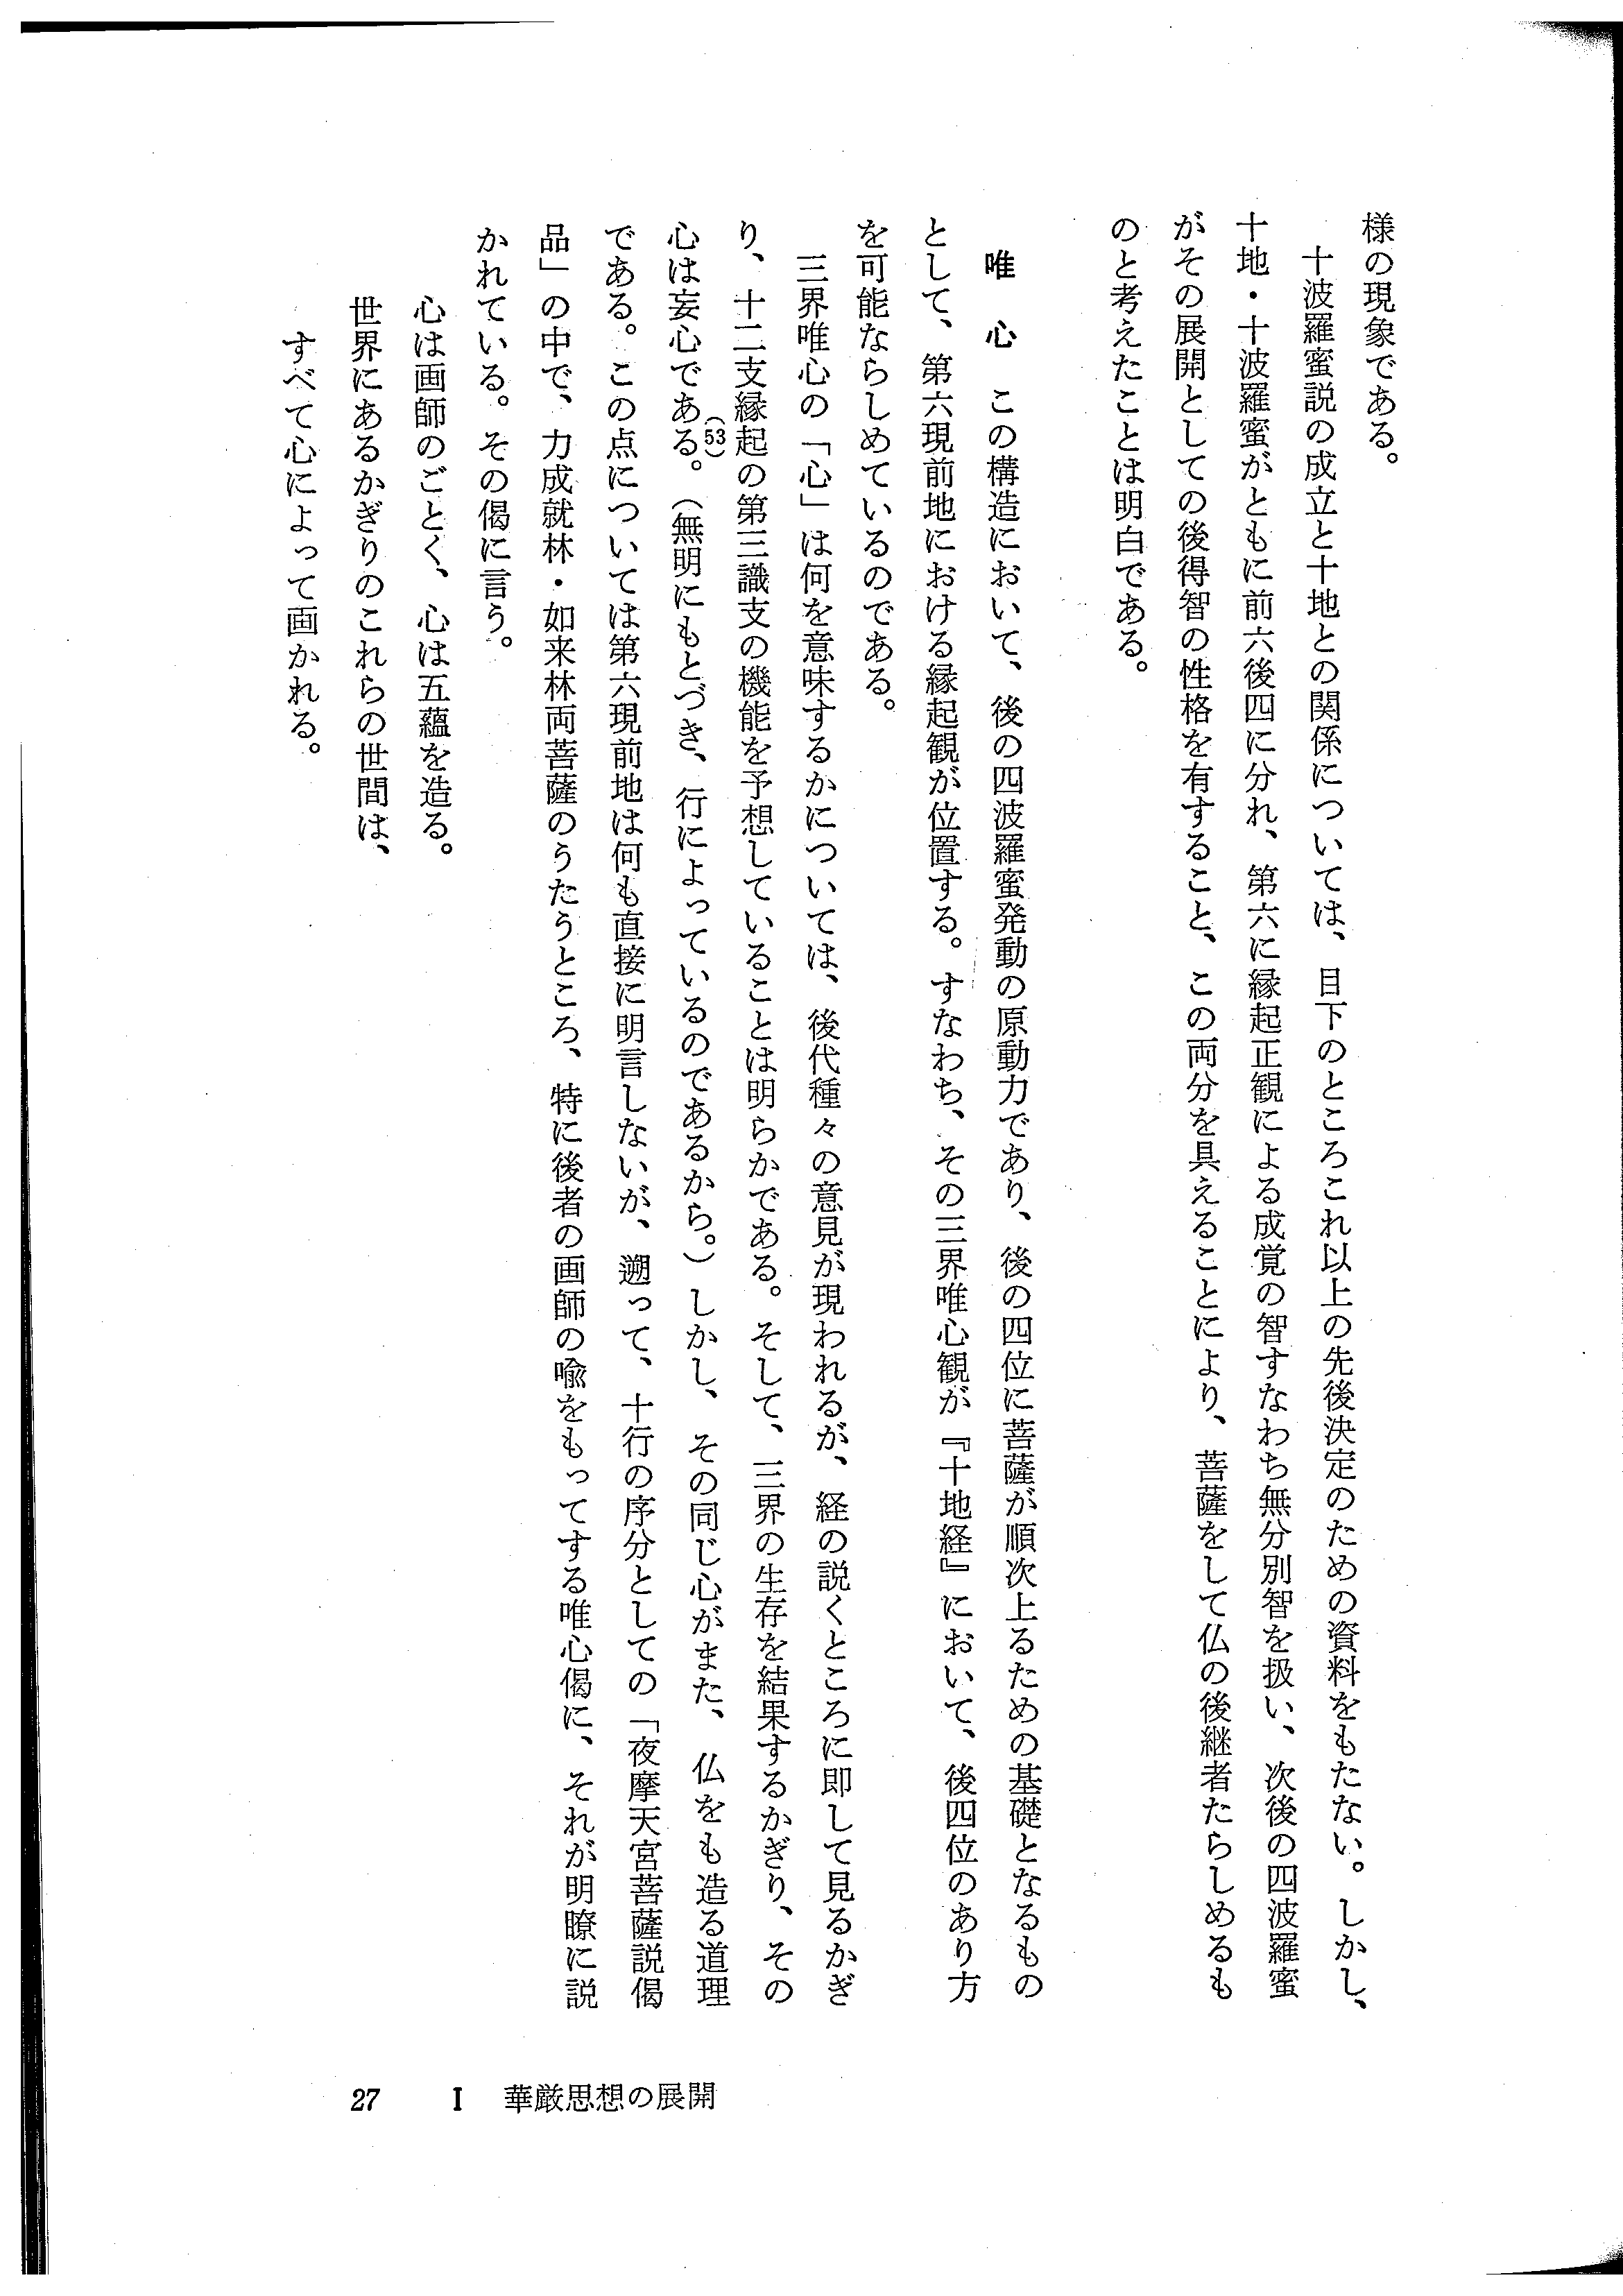 様の現象である。
十波羅蜜説の成立と十地との関係については、目下のところこれ以上の先後決定のための資料をもたない。しかし、
十地・十波羅蜜がともに前六後四に分れ、第六に縁起正観による成覚の智すなわち無分別智を扱い、次後の四波羅蜜
がその展開としての後得智の性格を有すること、この両分を具えることにより、菩薩をして仏の後継者たらしめるも
のと考えたことは明白である。
唯　心　この構造において、後の四波羅蜜発動の原動力であり、後の四位に菩薩が順次上るための基礎となるもの
として、第六現前地における縁起観が位置する。すなわち、その三界唯心観が『十地経』において、後四位のあり方
を可能ならしめているのである。
三界唯心の「心」は何を意味するかについては、後代種々の意見が現われるが、経の説くところに即して見るかぎ
り、十二支縁起の第三識支の機能を予想していることは明らかである。そして、三界の生存を結果するかぎり、その
心は妄心である。(53)（無明にもとづき、行によっているのであるから。）しかし、その同じ心がまた、仏をも造る道理
である。この点については第六現前地は何も直接に明言しないが、遡って、十行の序分としての「夜摩天宮菩薩説偈
品」の中で、力成就林・如来林両菩薩のうたうところ、特に後者の画師の喩をもってする唯心偈に、それが明瞭に説
かれている。その偈に言う。
心は画師のごとく、心は五蘊を造る。
世界にあるかぎりのこれらの世間は、
すべて心によって画かれる。
27　I　華厳思想の展開